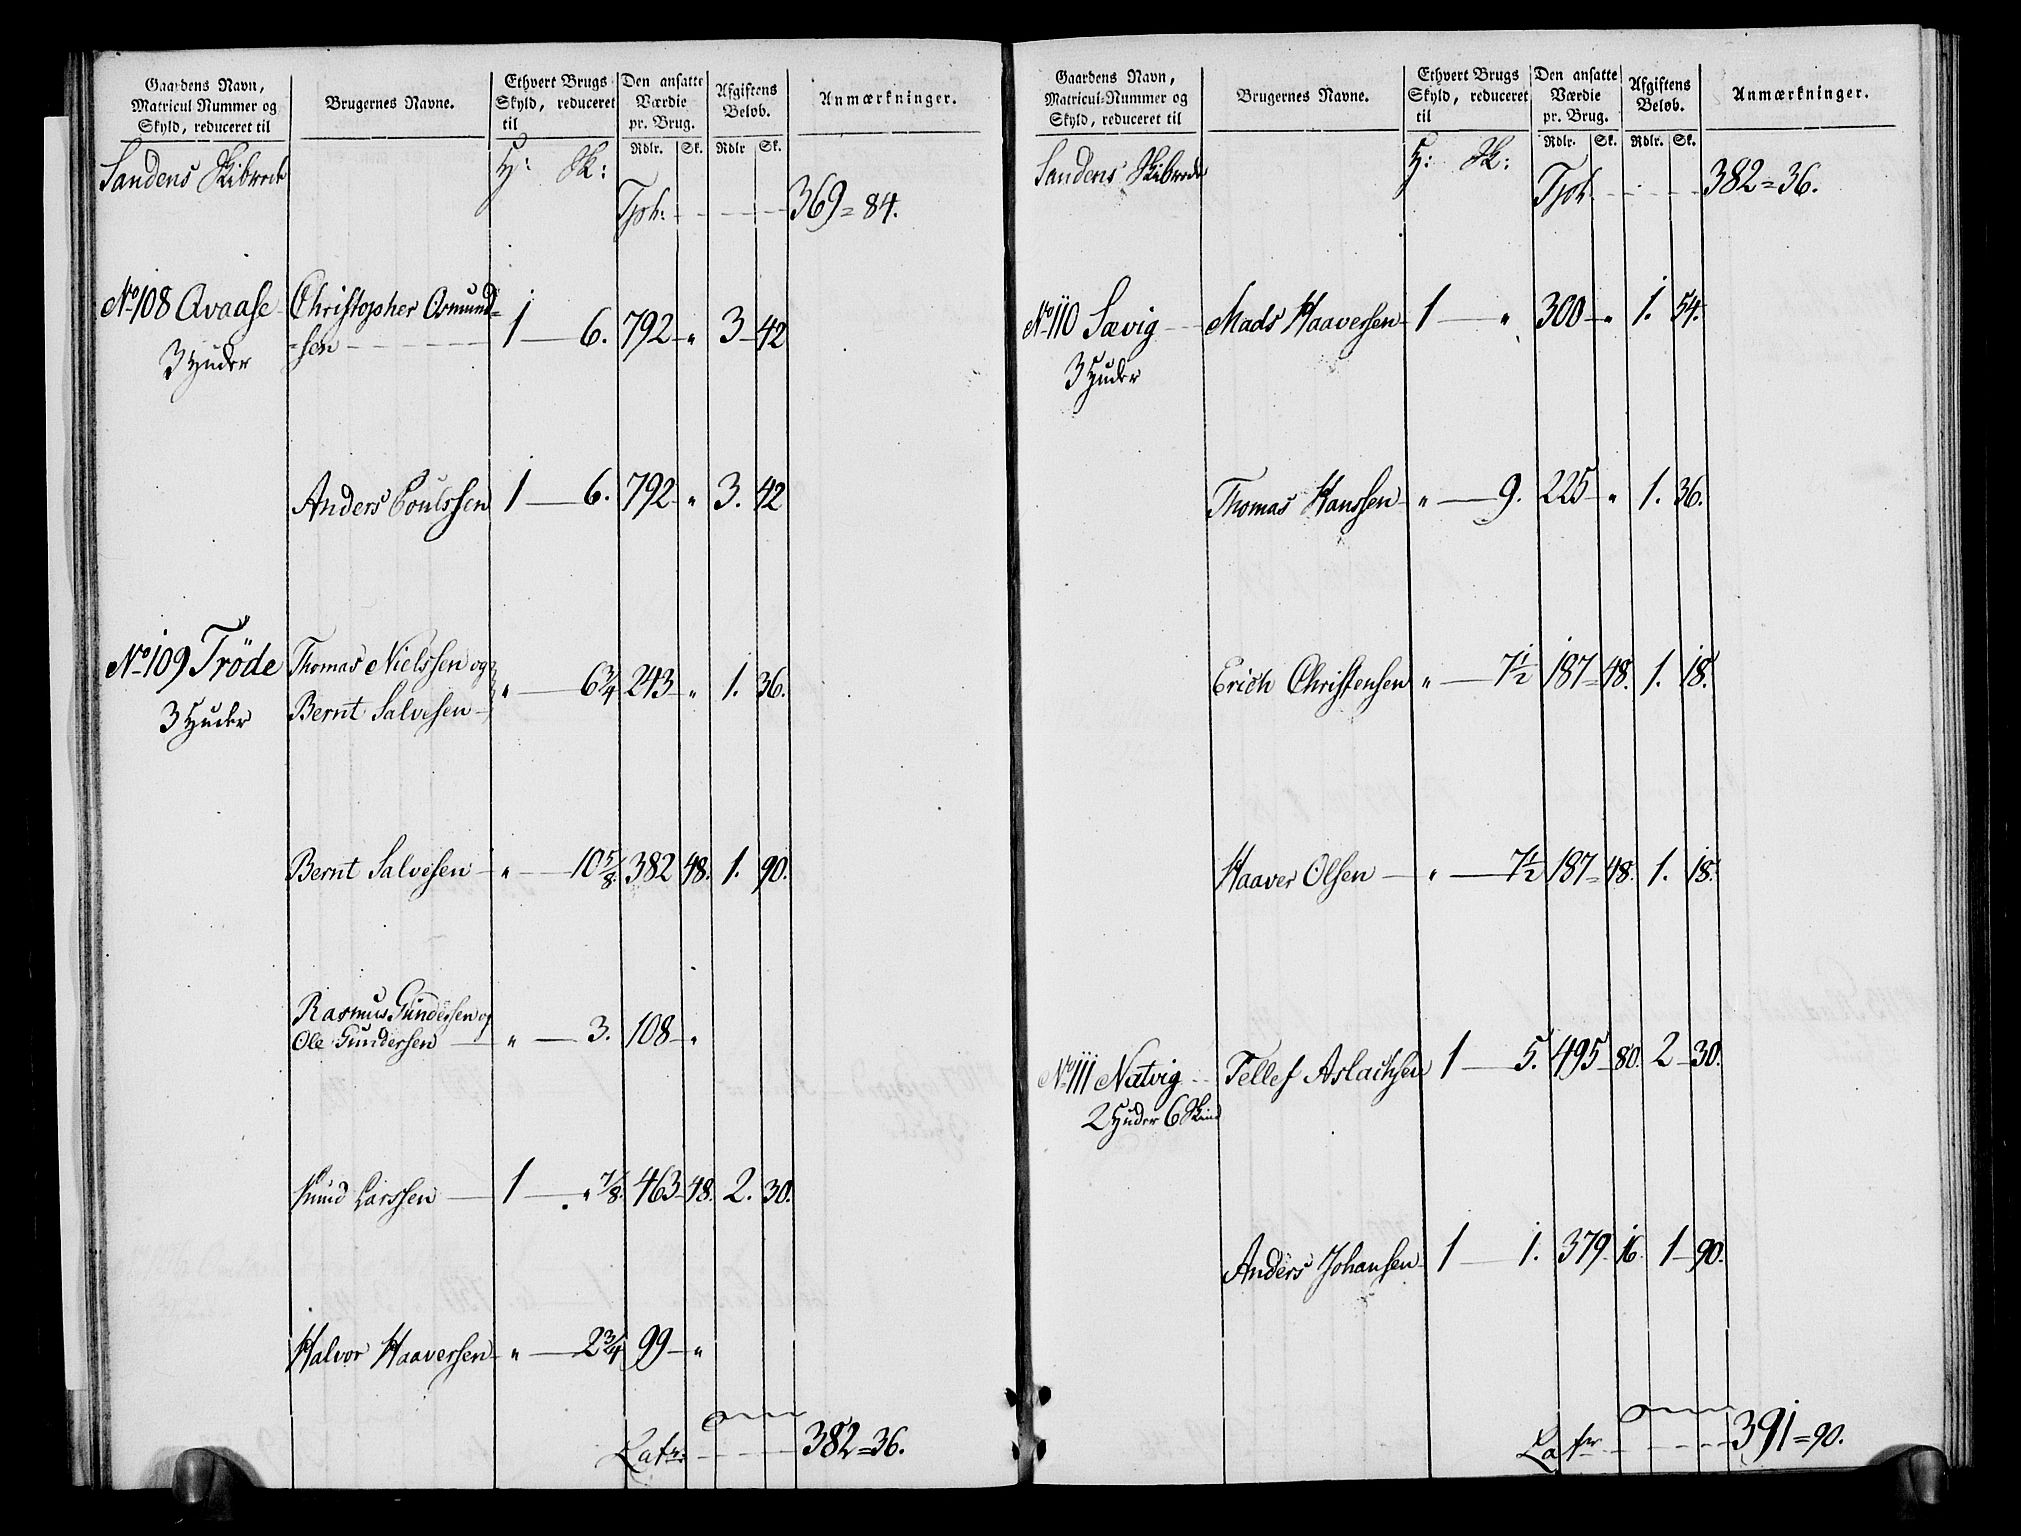 Gaardens Navn,
Matricul Nummer og
Skyld, reduceret til
Brugernes Navne.
Ethvert Brugs
Skyld, reduceret
til
Den ansatte
Værdie
pr. Brug.
Rdlr. Sk.
Afgiftens
Beløb.
Rdlr Sk.
Anmærkninger.
Sandens Skibrede H: Sk:
Tpst: 369=84.
No 108 Avaase Christopher Osmund=
=sen 1 6. 792 " 3 42
3 Huder
Anders Poulssen 1 6. 792 " 3. 42
No 109 Tröde Thomas Nielssen og
Bernt Salvesen " 6 3/4 243 " 1. 36.
3 Huder
Bernt Salvesen " 10 5/8 382 48. 1. 90.
Rasmus Gundersen og
Ole Gundersen " 3. 108 "
Knud Larssen 1 " 7/8. 463 48. 2. 30.
Halvor Haaversen " 2 3/4 99 "
Latr: 382=36.
Gaardens Navn,
Matricul-Nummer og
Skyld, reduceret til
Brugernes Navne.
Ethvert Brugs
Skyld, reduceret
til
Den ansatte
Værdie
pr. Brug.
Rdlr. Sk.
Afgiftens
Beløb.
Rdlr. Sk.
Anmærkninger.
Sandens Skibrede H: Sk:
Tpst 382=36.
No 110 Sævig Mads Haaversen 1 " 300 " 1. 54.
3 Huder
Thomas Hanssen " 9. 225 " 1. 36.
Erich Christensen " 7 1/2 187 48. 1. 18.
Haaver Olsen " 7 1/2 187 48. 1. 18.
No 111 Natvig Tellef Aslachsen 1 5. 495 80. 2 30.
2 Huder 6 Skind
Anders Johansen 1 1. 379. 16. 1 90.
Latr 391=90.